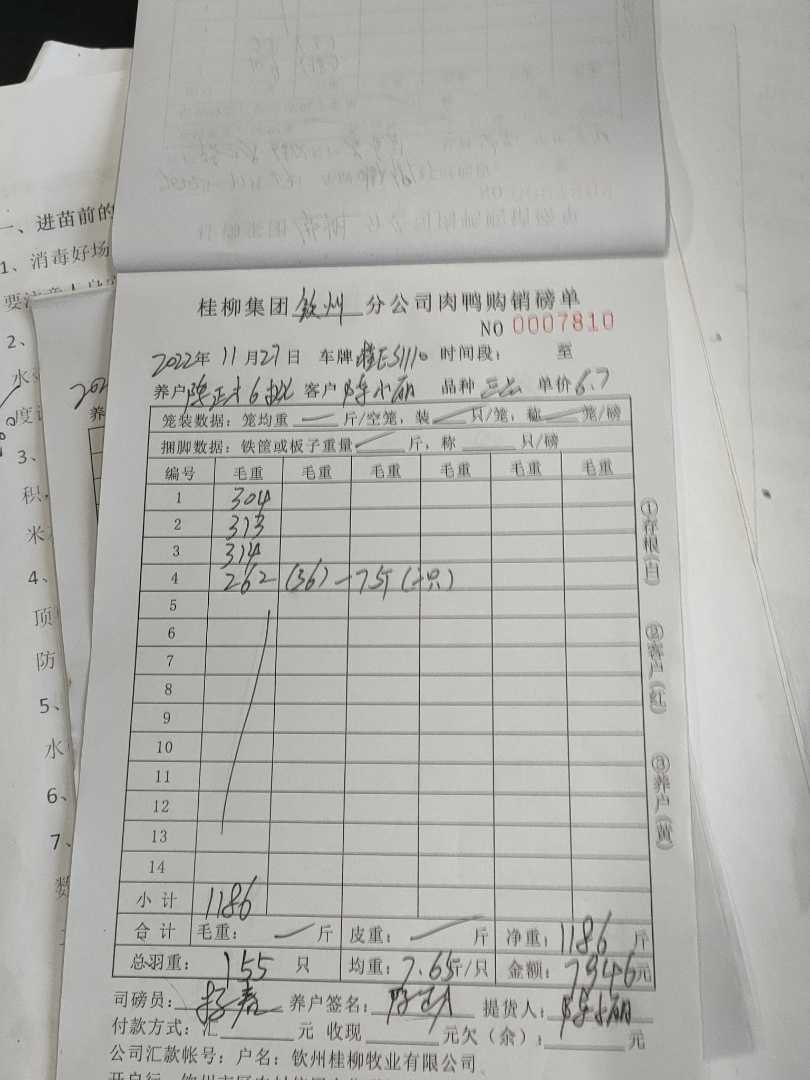 一、进苗前的
1、消毒好场
2、
水
度
3、
积
米
4、
顶
防
5、
水
6、
7、
数
桂柳集团钦州分公司肉鸭购销磅单
NO 0007810
2022年11月27日 车牌桂E5111 时间段： 至
养户陈正才6批 客户陈小丽 品种三云 单价6.7
笼装数据：笼均重 — 斤/空笼，装 — 只/笼，称 — 笼/磅
捆脚数据：铁筐或板子重量 — 斤，称 只/磅
编号 毛重 毛重 毛重 毛重 毛重 毛重
1 304
2 313
3 314
4 262 (36) -7斤 (一只)
5
6
7
8
9
10
11
12
13
14
小计 1186
合计 毛重： — 斤 皮重： — 斤 净重：1186斤
总羽重：155只 均重：7.65斤/只 金额：7946元
司磅员： 养户签名： 提货人：陈小丽
付款方式：汇 元 收现 元欠（余）： 元
公司汇款帐号：户名：钦州桂柳牧业有限公司
①存根（白） ②客户（红） ③养户（黄）